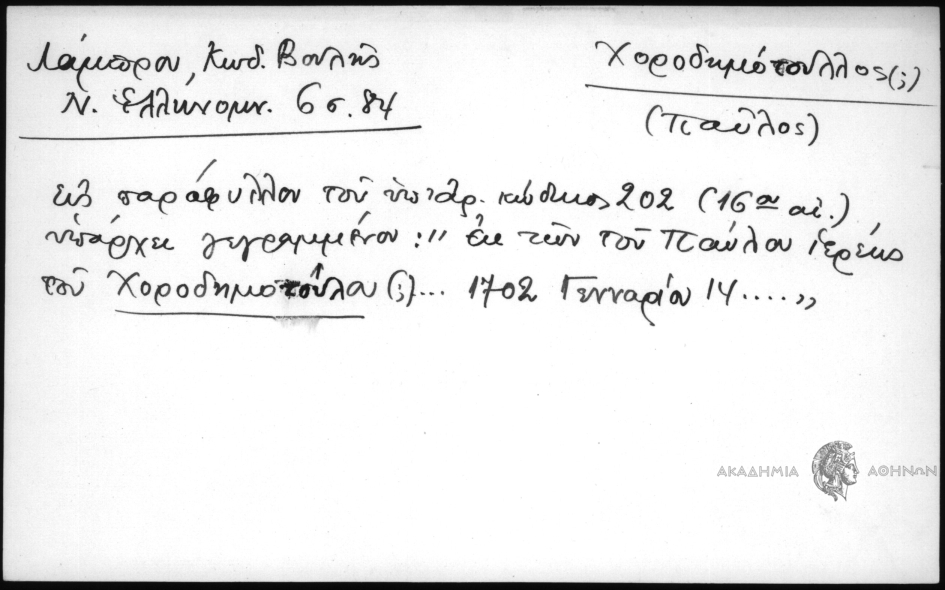 Λάμπρου, Κωδ. Βουλῆς
Ν. Ἑλληνομν. 6 σ. 84
Χοροδημόπουλλος (;)
(Παῦλος)
Εἰς παράφυλλον τοῦ ὑπ' ἀρ. κώδικος 202 (16ου αἰ.)
ὑπάρχει γεγραμμένον: " Ἐκ τῶν τοῦ Παύλου ἱερέως
τοῦ Χοροδημοπούλου (;)... 1702 Γενναρίου 14 .... "
ΑΚΑΔΗΜΙΑ ΑΘΗΝΩΝ